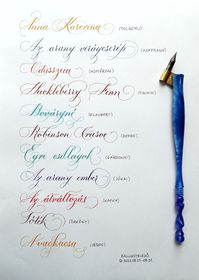 Anna Karenina (TOLSZTOJ)
Az arany virágcserép (HOFFMANN)
Odüsszeia (HOMÉROSZ)
Huckleberry Finn (TWAIN)
Bovaryné (FLAUBERT)
Robinson Crusoe (DEFOE)
Egri csillagok (GÁRDONYI)
Az arany ember (JÓKAI)
Az átváltozás (KAFKA)
A vadkacsa (IBSEN)